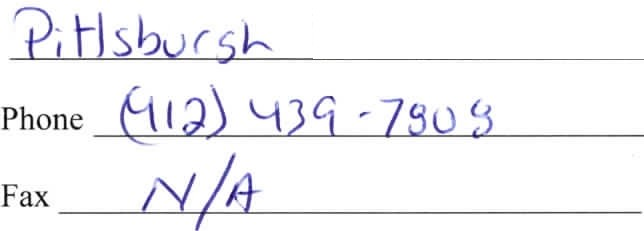 Pittsburgh
Phone (412) 439-7808
Fax N/A